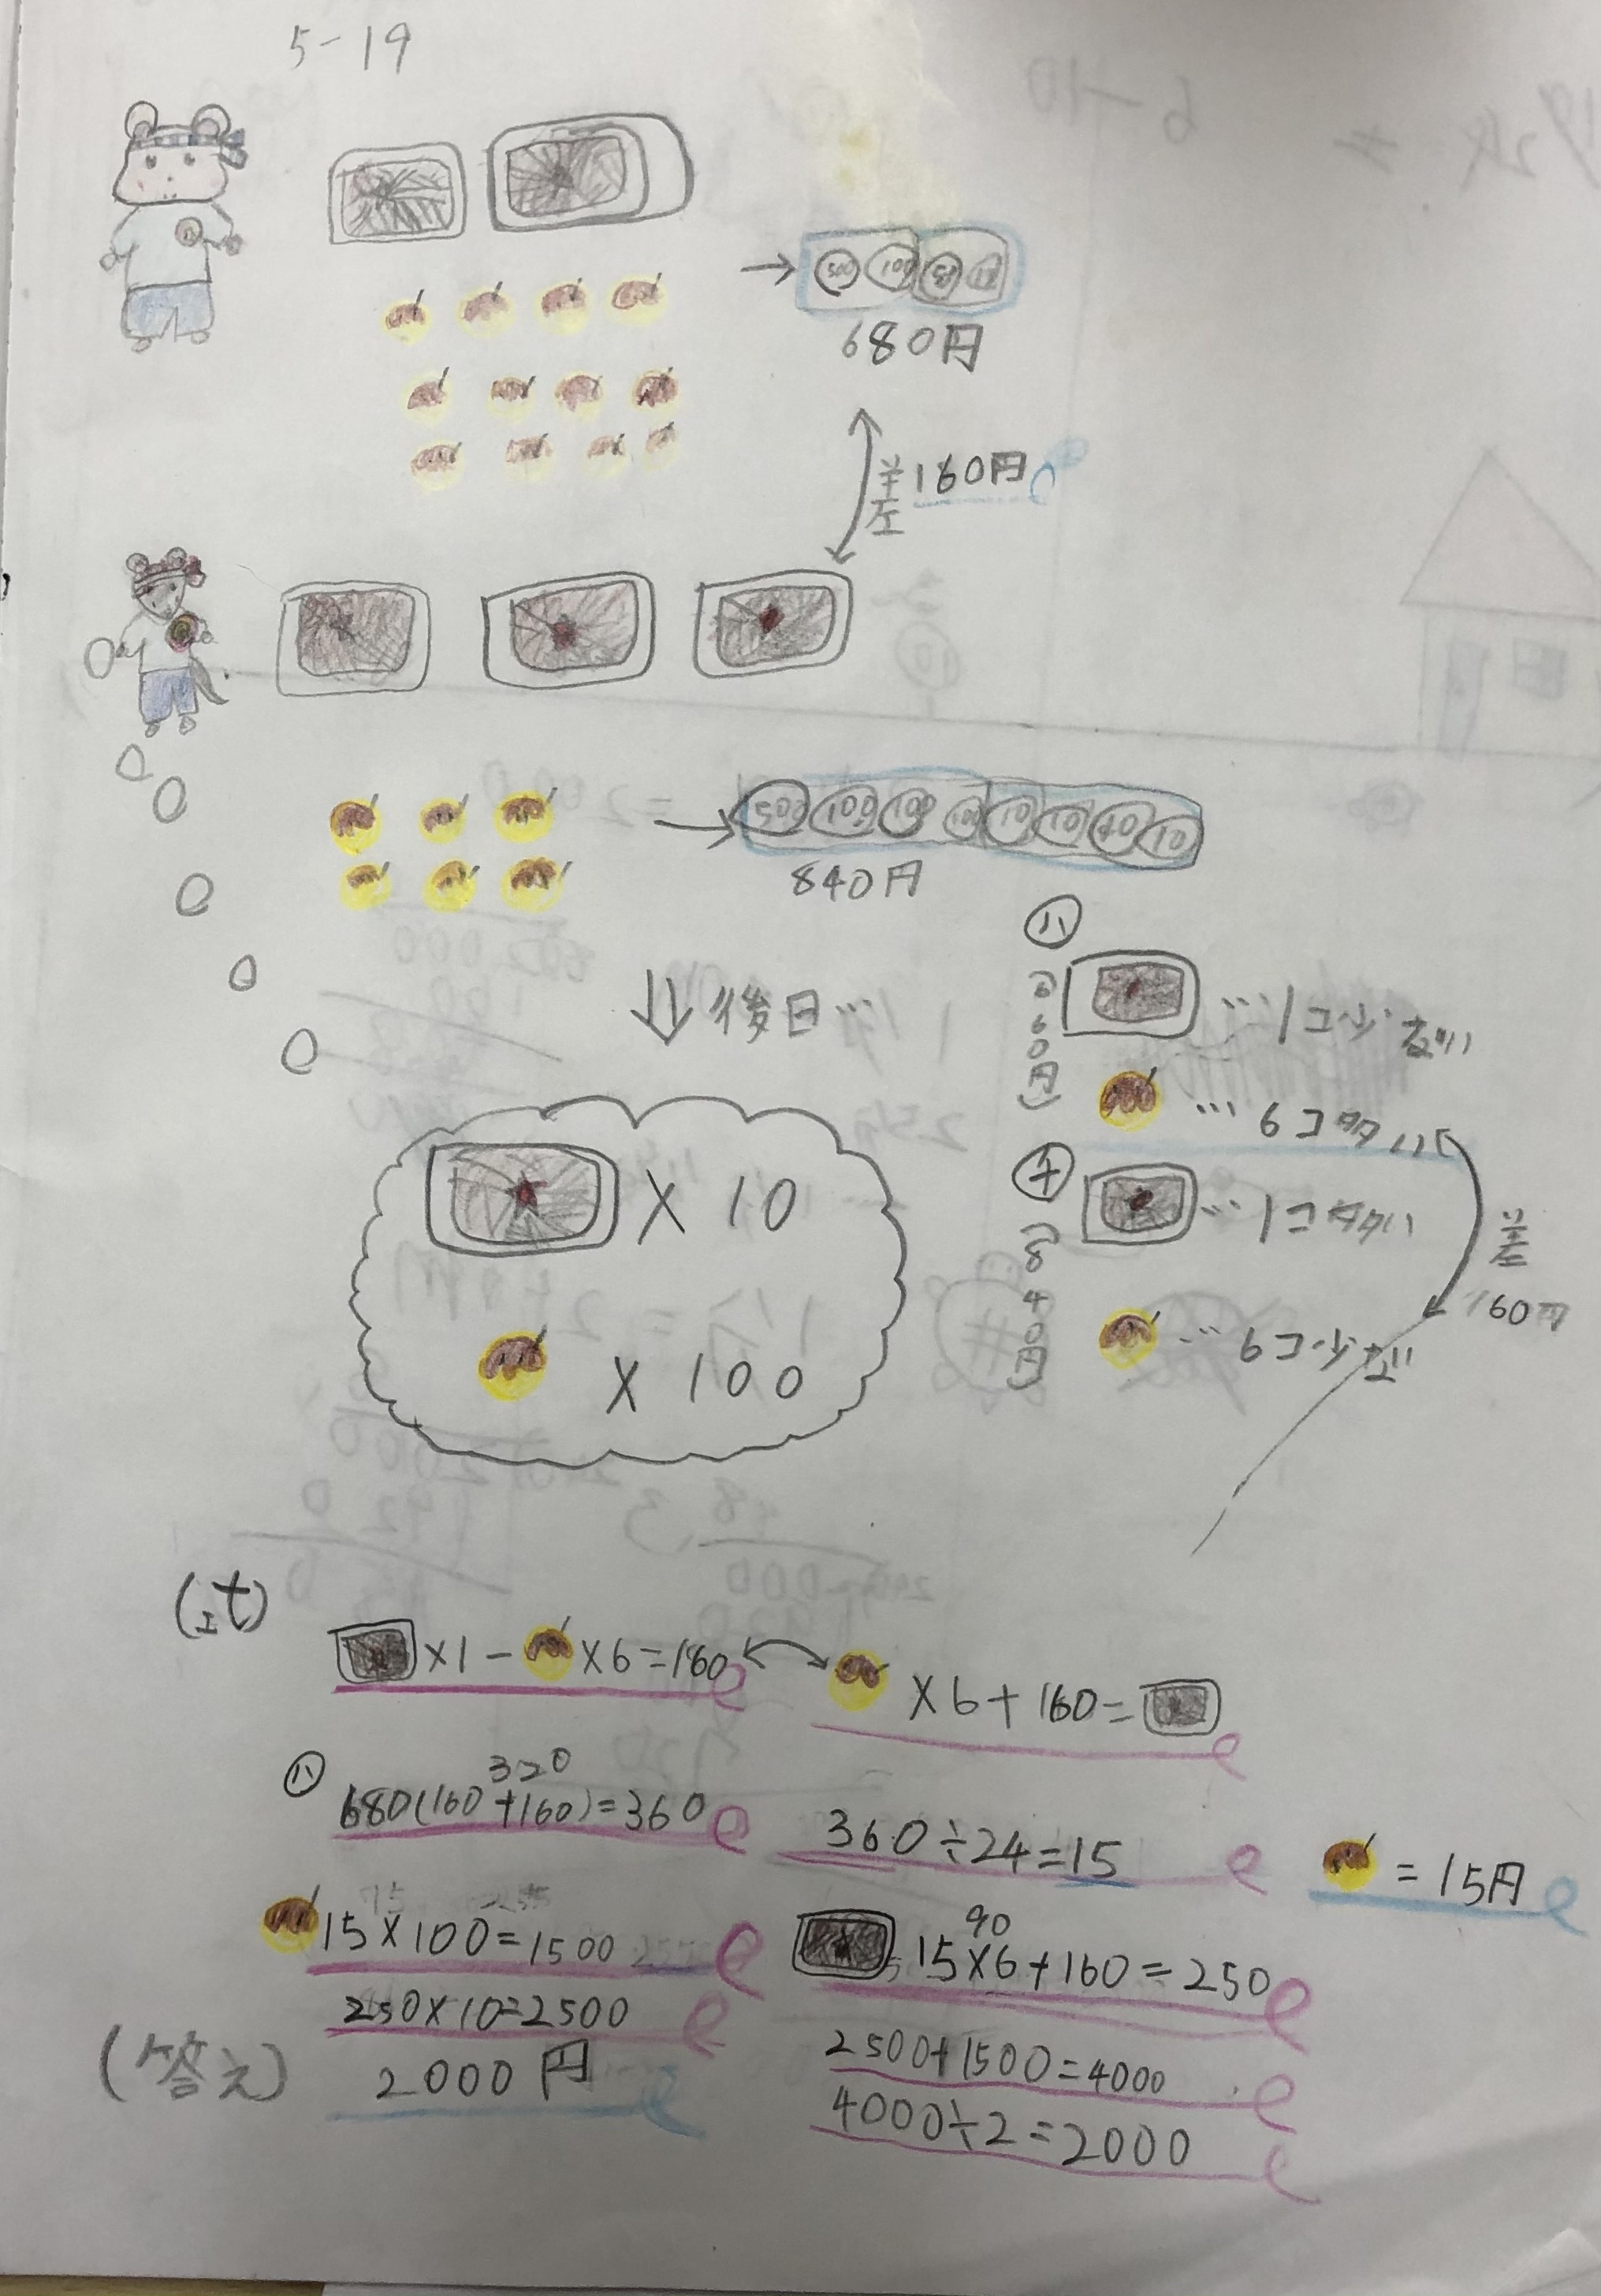 5-19
500 100
680円
差160円
500 100 100 100 10 10 10 10
840円
後日…
×10
×100
ハ
(680円)
…1コ少ない
…6コ多い
チ
(840円)
…1コ多い
…6コ少ない
差
160円
(式)
×1-×6=160
×6+160=
ハ
320
680(160+160)=360
360÷24=15
=15円
15×100=1500
90
15×6+160=250
250×10=2500
2500+1500=4000
4000÷2=2000
(答え) 2000円